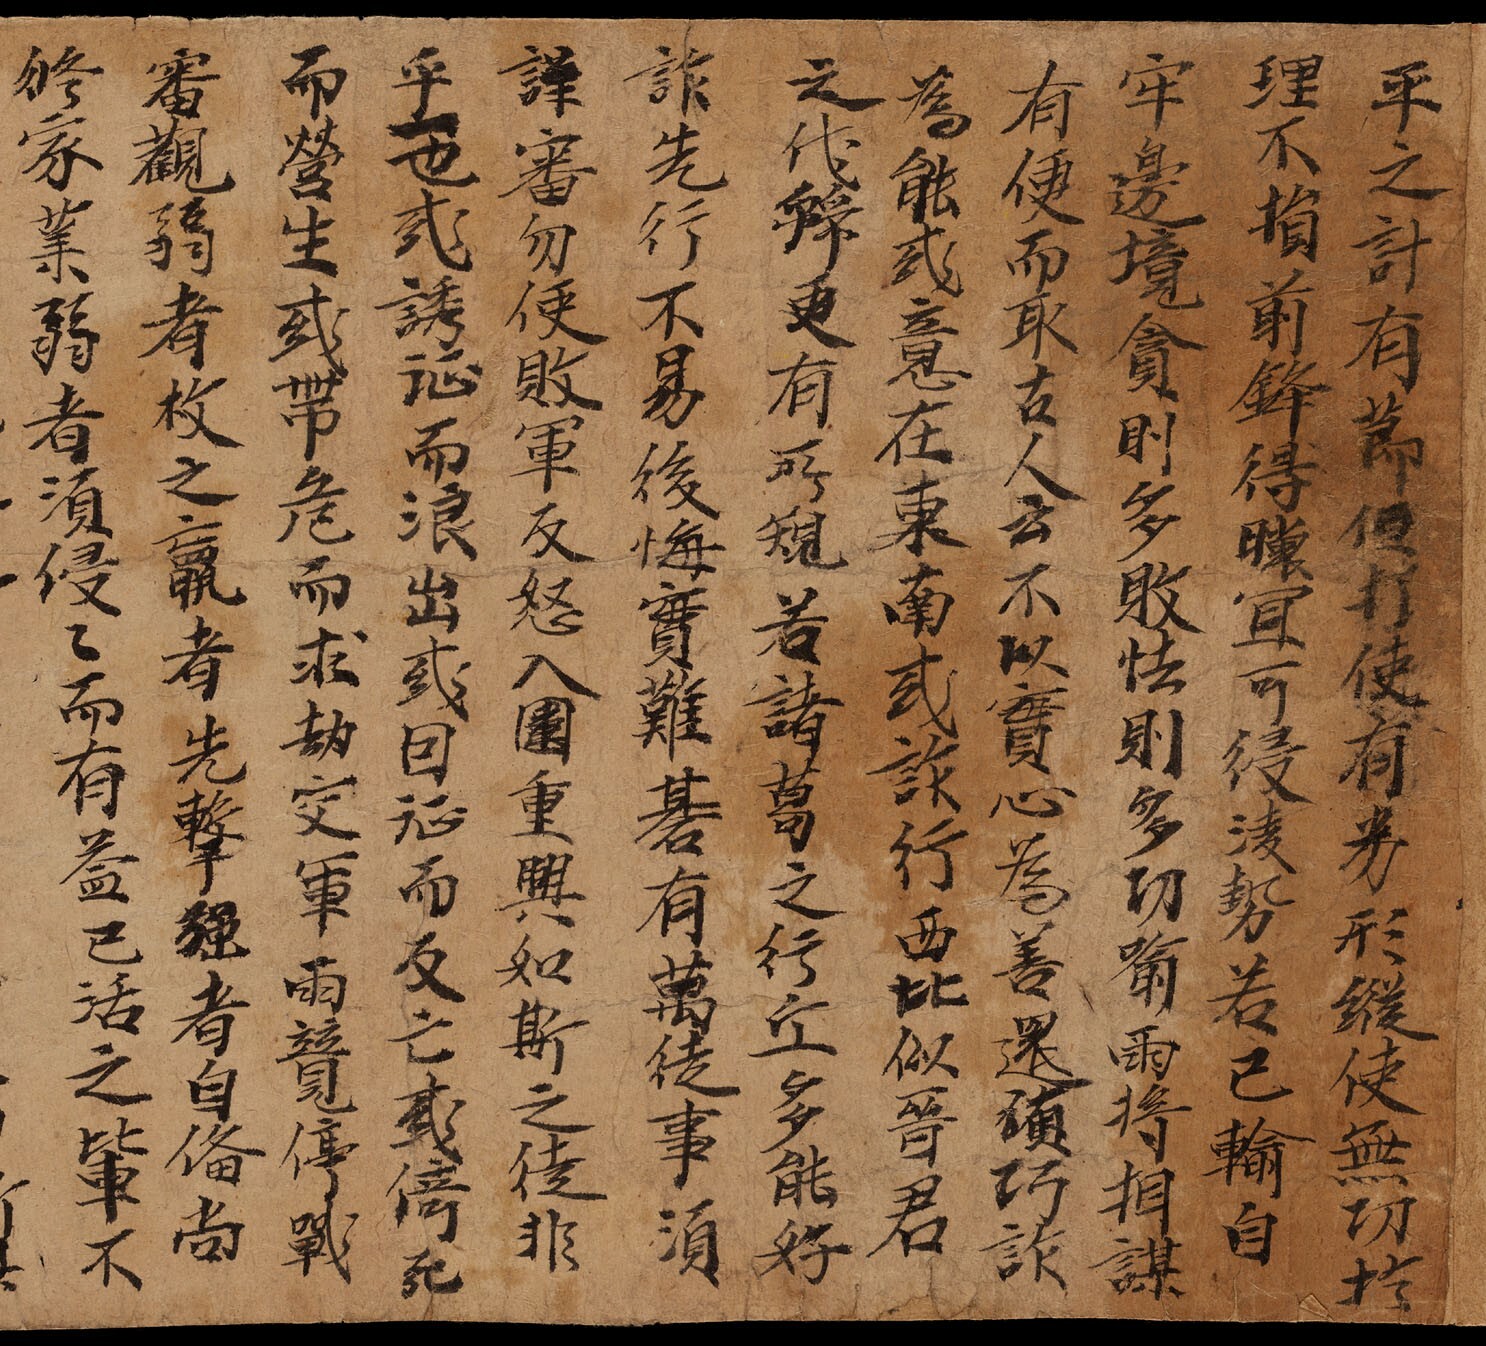 平之計有莭但打使有劣形縱使無功扵
理不損前鋒得曃冝可侵淩勢若已輸自
牢邊境貪則多敗怯則多功喻雨将相謀
有便而取古人云不以實心為善還須巧詐
為能或意在東南或詐行西北似晉君
之伐虢更有所窺若諸葛之行丘多能好
詐先行不易後悔實難碁有萬徒事須
謹審勿使敗軍反怒入圍重興如斯之徒非
乎一也或誘征而浪出或因征而反亡或倚死
而營生或帶危而求劫交軍雨競停戰
審觀弱者枚之羸者先擊強者自俻尚
修家業弱者須侵〻而有益已活之軰不